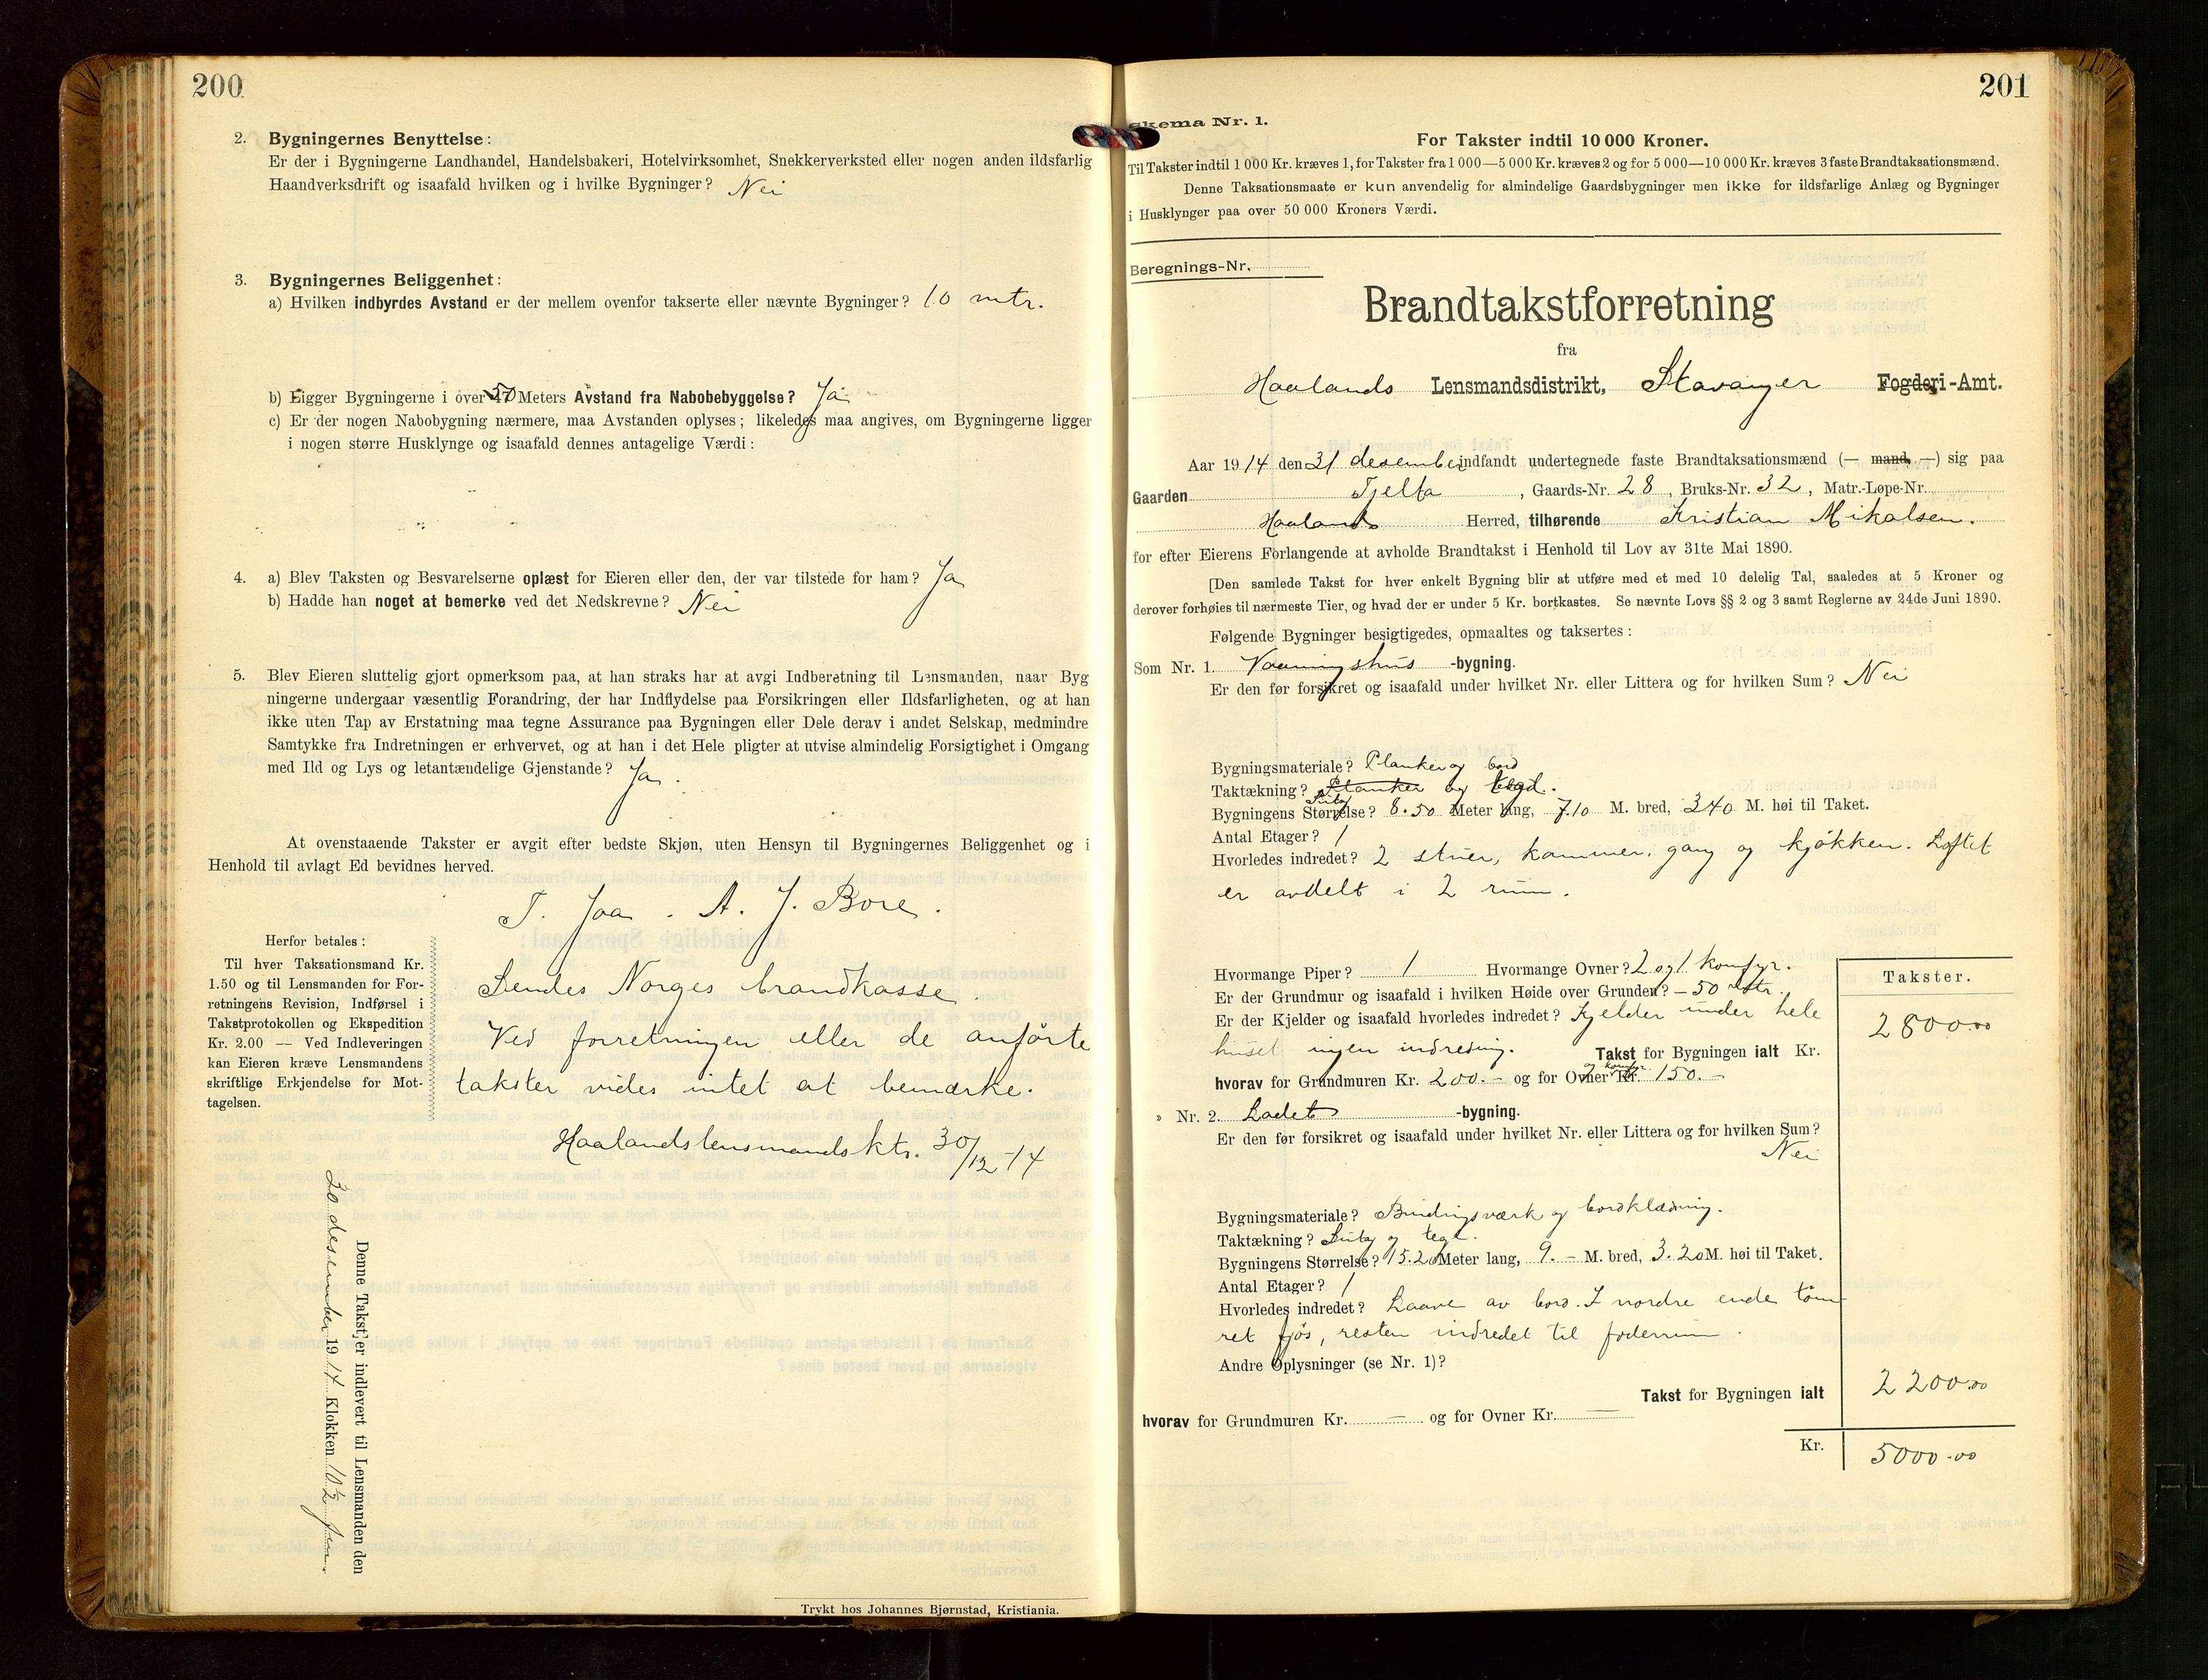 200
2. Bygningernes Benyttelse:
Er der i Bygningerne Landhandel, Handelsbakeri, Hotelvirksomhet, Snekkerverksted eller nogen anden ildsfarlig
Haandverksdrift og isaafald hvilken og i hvilke Bygninger? Nei
3. Bygningernes Beliggenhet:
a) Hvilken indbyrdes Avstand er der mellem ovenfor takserte eller nævnte Bygninger? 10 mtr.
b) Ligger Bygningerne i over 50 Meters Avstand fra Nabobebyggelse? Ja
c) Er der nogen Nabobygning nærmere, maa Avstanden oplyses; likeledes maa angives, om Bygningerne ligger
i nogen større Husklynge og isaafald dennes antagelige Værdi:
4. a) Blev Taksten og Besvarelserne oplæst for Eieren eller den, der var tilstede for ham? Ja
b) Hadde han noget at bemerke ved det Nedskrevne? Nei
5. Blev Eieren sluttelig gjort opmerksom paa, at han straks har at avgi Indberetning til Lensmanden, naar Byg
ningerne undergaar væsentlig Forandring, der har Indflydelse paa Forsikringen eller Ildsfarligheten, og at han
ikke uten Tap av Erstatning maa tegne Assurance paa Bygningen eller Dele derav i andet Selskap, medmindre
Samtykke fra Indretningen er erhvervet, og at han i det Hele pligter at utvise almindelig Forsigtighet i Omgang
med Ild og Lys og letantændelige Gjenstande? Ja.
At ovenstaaende Takster er avgit efter bedste Skjøn, uten Hensyn til Bygningernes Beliggenhet og i
Henhold til avlagt Ed bevidnes herved.
T. Jaa. A. J. Bore.
Herfor betales:
Til hver Taksationsmand Kr.
1.50 og til Lensmanden for For-
retningens Revision, Indførsel i
Takstprotokollen og Ekspedition
Kr. 2.00 — Ved Indleveringen
kan Eieren kræve Lensmandens
skriftlige Erkjendelse for Mot-
tagelsen.
Sendes Norges brandkasse.
Ved forretningen eller de anførte
takster vides intet at bemærke.
Haalands lensmandsktr. 30/12-14
Denne Takst er indlevert til Lensmanden den
30 desember 1914 Klokken 10½ fm.
Trykt hos Johannes Bjørnstad, Kristiania.
201
Skema Nr. 1.
For Takster indtil 10 000 Kroner.
Til Takster indtil 1 000 Kr. kræves 1, for Takster fra 1 000—5 000 Kr. kræves 2 og for 5 000—10 000 Kr. kræves 3 faste Brandtaksationsmænd.
Denne Taksationsmaate er kun anvendelig for almindelige Gaardsbygninger men ikke for ildsfarlige Anlæg og Bygninger
i Husklynger paa over 50 000 Kroners Værdi.
Beregnings-Nr.
Brandtakstforretning
fra
Haalands Lensmandsdistrikt, Stavanger Fogderi-Amt.
Aar 1914 den 31 desember indfandt undertegnede faste Brandtaksationsmænd (— mand, —) sig paa
Gaarden Tjelta, Gaards-Nr. 28, Bruks-Nr. 32, Matr.-Løpe-Nr.
Haalands Herred, tilhørende Kristian Mikalsen.
for efter Eierens Forlangende at avholde Brandtakst i Henhold til Lov av 31te Mai 1890.
[Den samlede Takst for hver enkelt Bygning blir at utføre med et med 10 delelig Tal, saaledes at 5 Kroner og
derover forhøies til nærmeste Tier, og hvad der er under 5 Kr. bortkastes. Se nævnte Lovs §§ 2 og 3 samt Reglerne av 24de Juni 1890.
Følgende Bygninger besigtigedes, opmaaltes og taksertes:
Som Nr. 1. Vaaningshus -bygning.
Er den før forsikret og isaafald under hvilket Nr. eller Littera og for hvilken Sum? Nei
Bygningsmateriale? Planker og bord
Taktækning? Planker og tegl.
Sutag
Bygningens Størrelse? 8.50 Meter lang, 7.10 M. bred, 340 M. høi til Taket.
Antal Etager? 1
Hvorledes indredet? 2 stuer, kammer, gang og kjøkken. Loftet
er avdelt i 2 rum.
Hvormange Piper? 1 Hvormange Ovner? 2 og 1 komfyr.
Er der Grundmur og isaafald i hvilken Høide over Grunden? -50 mtr.
Er der Kjelder og isaafald hvorledes indredet? Kjelder under hele
huset ingen indredning. Takst for Bygningen ialt Kr.
hvorav for Grundmuren Kr. 200.- og for Ovner Kr. 150.-
Takster.
2800.00
» Nr. 2. Ladet -bygning.
Er den før forsikret og isaafald under hvilket Nr. eller Littera og for hvilken Sum?
Nei
Bygningsmateriale? Bindingsværk og bordklædning.
Taktækning? Sutag og tegl.
Bygningens Størrelse? 15.20 Meter lang, 9.- M. bred, 3.20 M. høi til Taket.
Antal Etager? 1
Hvorledes indredet? Laave av bord. I nordre ende tøm-
ret fjøs, resten indredet til foderrum.
Andre Oplysninger (se Nr. 1)?
Takst for Bygningen ialt
2200.00
hvorav for Grundmuren Kr. — og for Ovner Kr. —
Kr. 5000.00